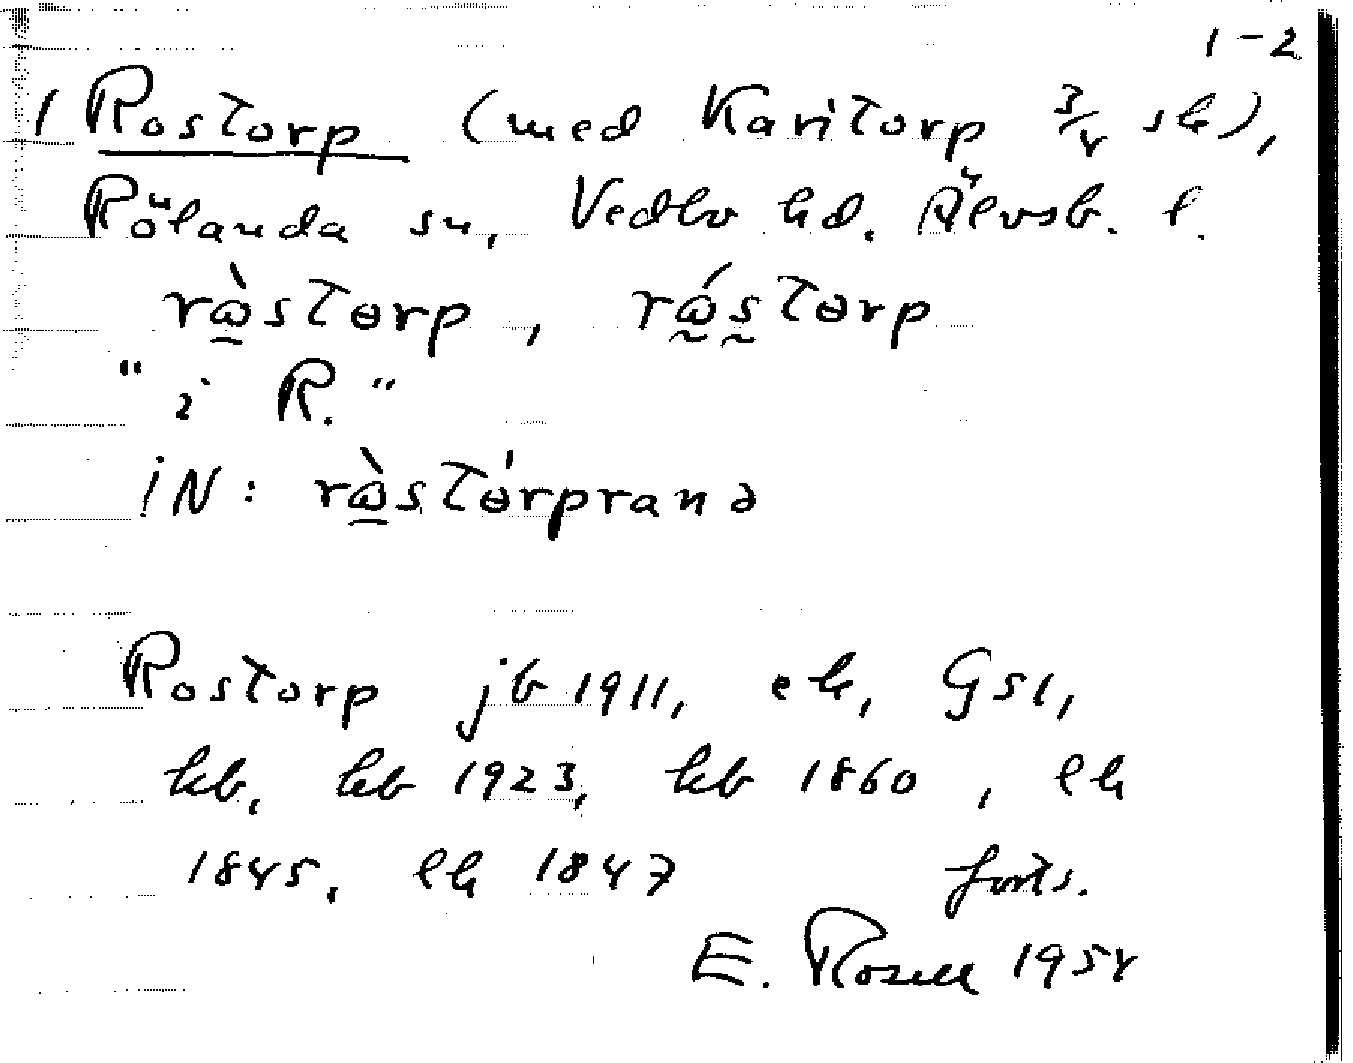 1-2
1 Rostorp (med Karitorp 3/4 sk),
Rölanda sn, Vedbo hd. Älvsb. l.
ràstɵrp, rástɵrp
" i R. "
iN: ràstɵ́rpranə
Rostorp jb 1911, ek, Gs1,
kb, kb 1923, kb 1860, lk
1845, lk 1847 forts.
E. Rosell 1954